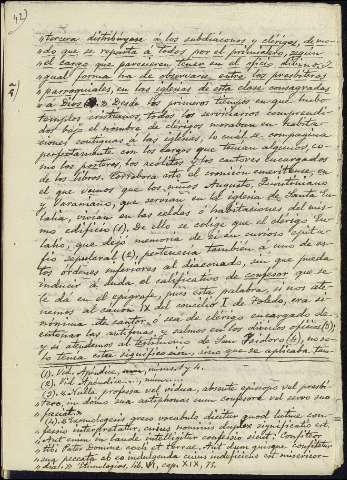 42)
"tercera distribúyase á los subdiáconos y clérigos, de mo-
do que se reparta á todos por el primicerio, según
el cargo que pareciere tener en el oficio divino. I-
gual forma ha de observarse entre los presbíteros
parroquiales, en las iglesias de esta clase consagradas
á Dios". Desde los primeros tiempos en que hubo
templos cristianos, todos los servidores comprendi-
dos bajo el nombre de clérigos moraban en habita-
ciones contiguas á las iglesias, lo cual se compagina
perfectamente con los cargos que tenían algunos, co-
mo los porteros, los acólitos y los cantores encargados
de los libros. Corrobora esto el cronicón emeritense, en
el que vemos que los niños Augusto, Quintiliano
y Veraniano, que servían en la iglesia de Santa Eu-
lalia, vivían en las celdas ó habitaciones del mis-
mo edificio (1). De ello se colige que el clérigo
que dejó memoria de sí en curioso epita-
fio sepulcral (2), pertenecía también á uno de es-
tos órdenes inferiores al diaconado, sin que pueda
inducir á duda el calificativo de confesor que se
le da en el epígrafe, pues esta palabra, si nos ate-
nemos al canon IX del concilio I de Toledo, era si-
nónima de cantor, ó sea de clérigo encargado de
entonar las antífonas y salmos en los divinos oficios (3);
y si atendemos al testimonio de San Isidoro (4), no so-
lo tenía esta significación, sino que se aplicaba tan-
(1). Vid. Apéndice, núms. 3 y 4.
(2). Vid. Apéndice, núm.
(3). "Nulla professa vel vidua, absente episcopo vel presby-
tero, in domo sua antiphonas cum confesore vel servo suo
faciat."
(4). "Exomologesis graeco vocabulo dicitur quod latine con-
fessio interpretatur, cuius nominis duplex significatio est.
Aut enim in laude intelligitur confessio sicut: Confitebor
tibi Pater Domine coeli et terrae. Aut dum quisque confitetur
sua peccata ab eo indulgenda cuius indeficiens est misericor-
dia." Etimologias, lib. VI, cap. XIX, 75.